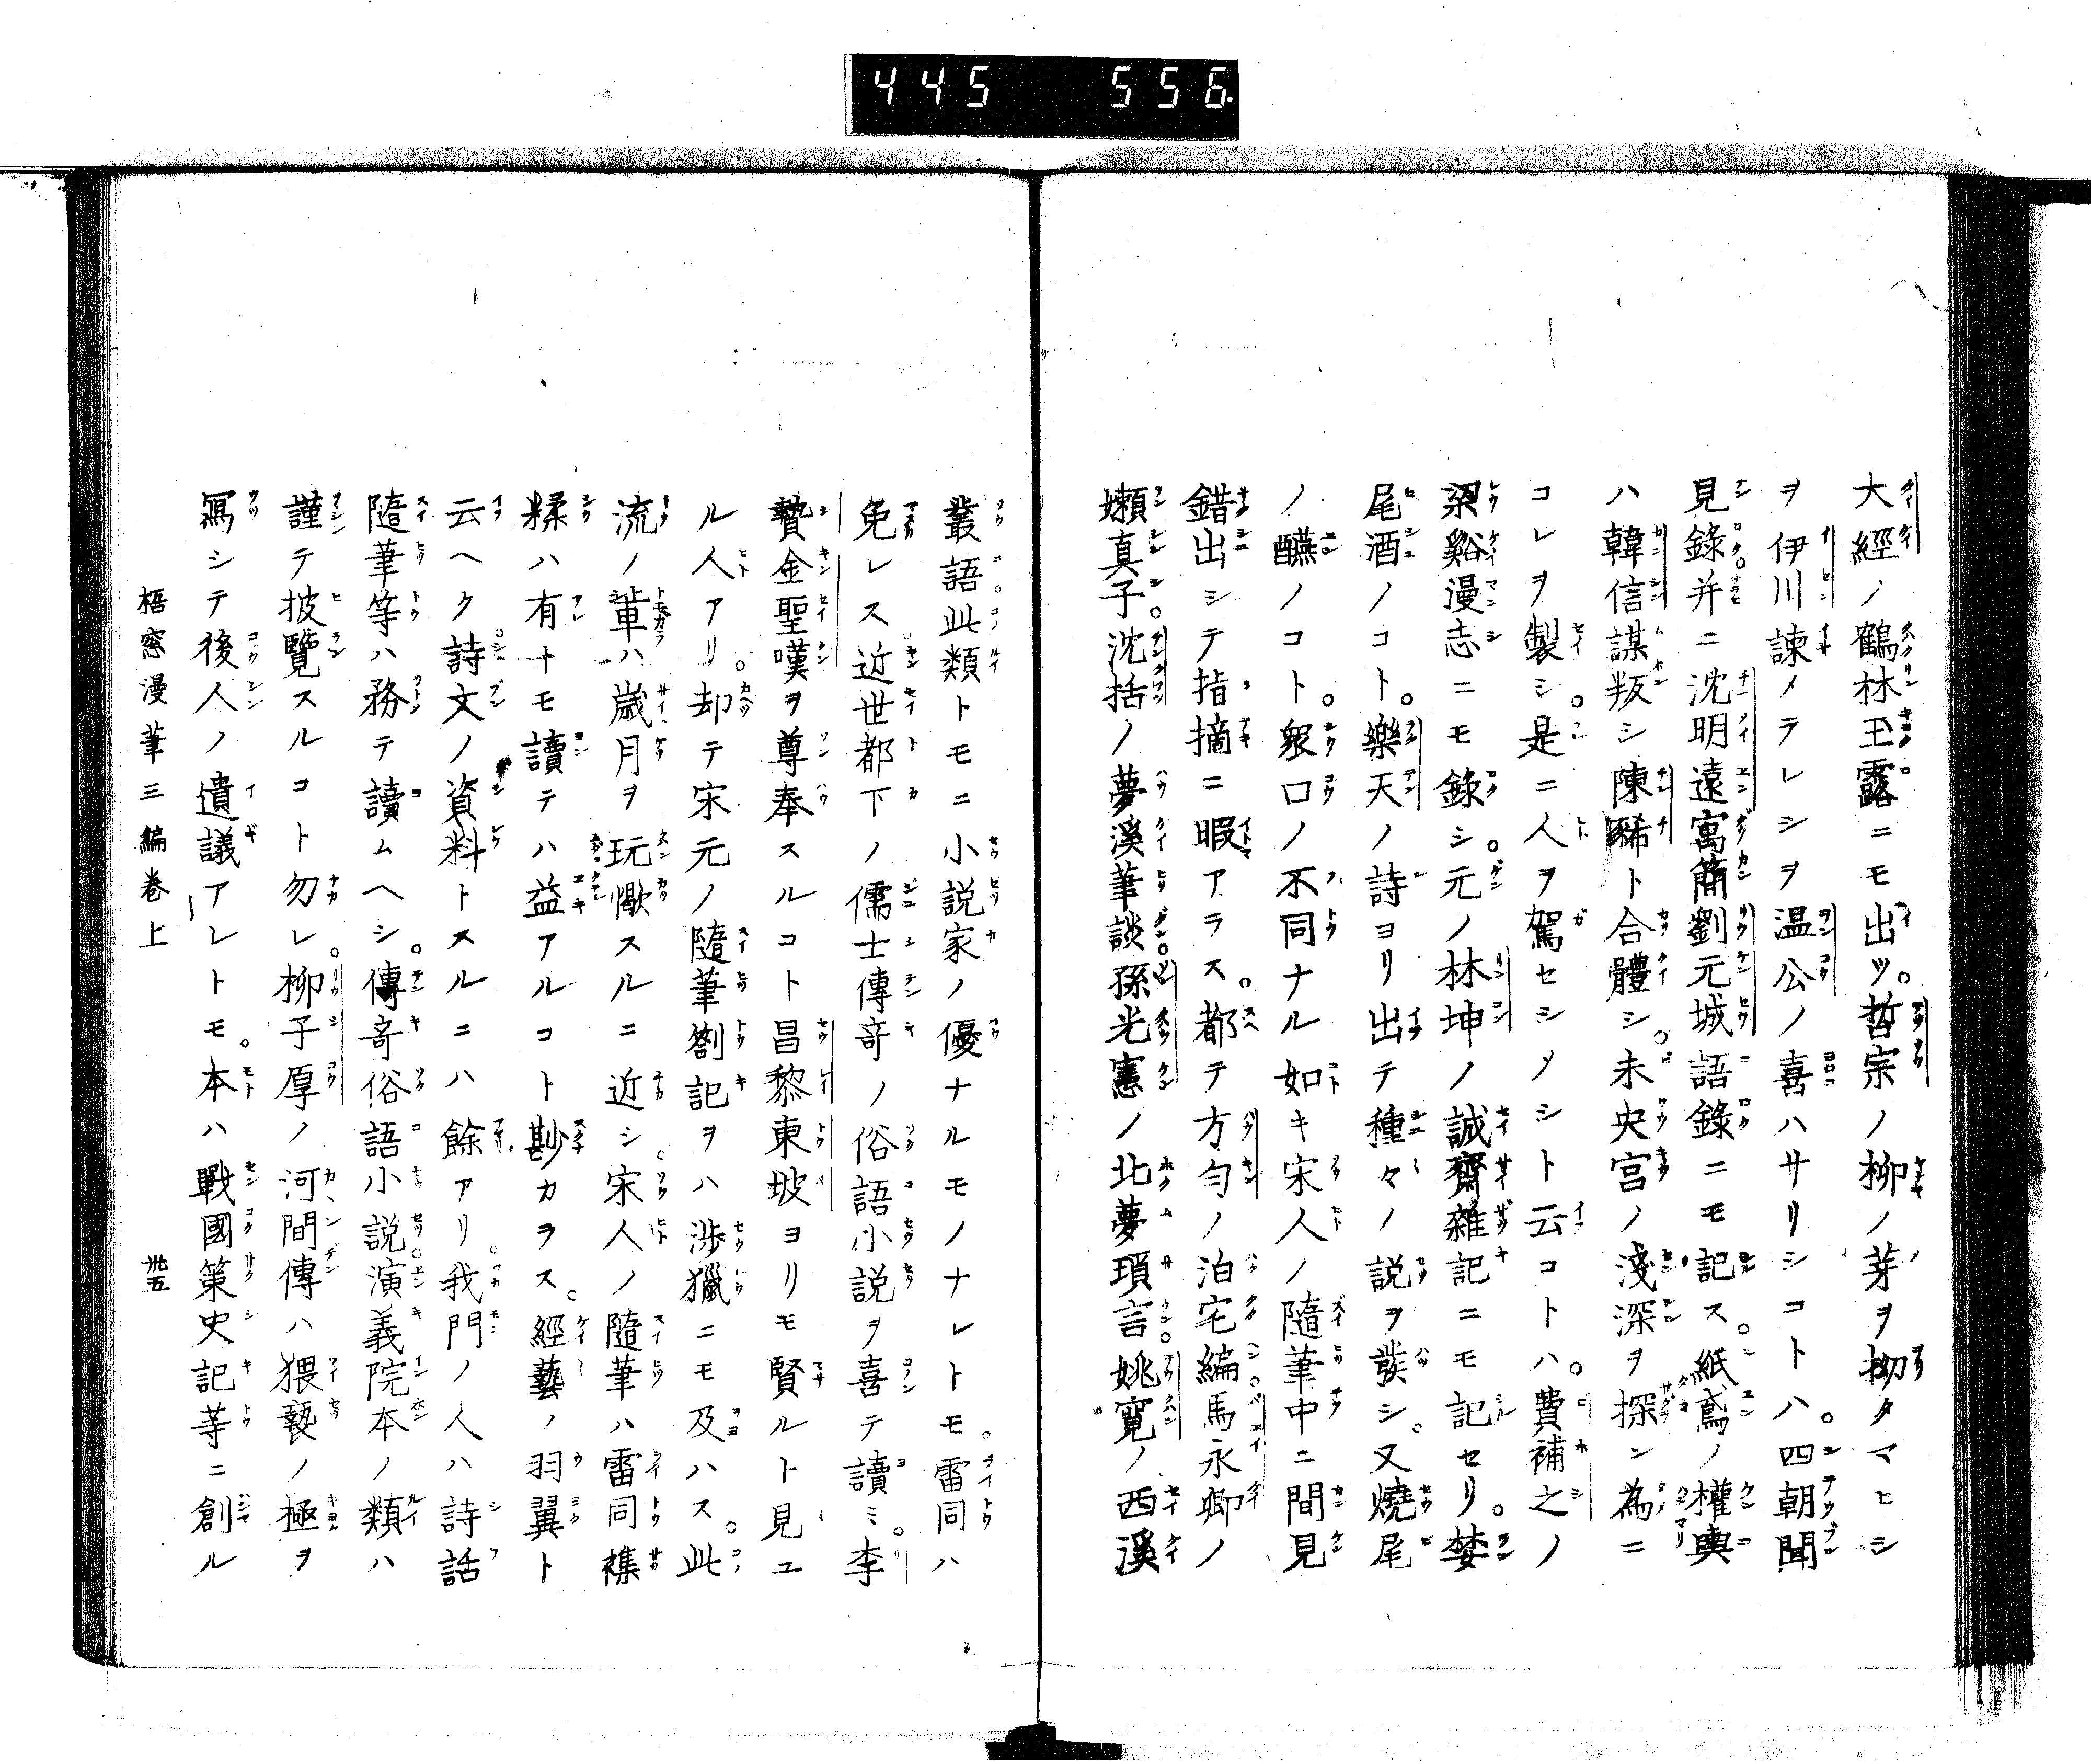 445 556
大經ノ鶴林玉露ニモ出ツ。哲宗ノ柳ノ芽ヲ拗タマヒシ
ヲ伊川諫メラレシヲ温公ノ喜ハサリシコトハ。四朝聞
見錄。并ニ沈明遠寓簡劉元城語錄ニモ記ス。紙鳶ノ權輿
ハ韓信謀叛シ陳豨ト合體シ。未央宮ノ淺深ヲ探ン為ニ
コレヲ製シ。是ニ人ヲ駕セシメシト云コトハ。費補之ノ
梁谿漫志ニモ錄シ。元ノ林坤ノ誠齋雜記ニモ記セリ。婪
尾酒ノコト。樂天ノ詩ヨリ出テ種々ノ説ヲ發シ。又燒尾
ノ醼ノコト。衆口ノ不同ナル如キ宋人ノ隨筆中ニ間見
錯出シテ指摘ニ暇アラス。都テ方勻ノ泊宅編。馬永卿ノ
嬾真子。沈括ノ夢溪筆談。孫光憲ノ北夢瑣言。姚寬ノ西溪
叢語。此類トモニ小説家ノ優ナルモノナレトモ。雷同ハ
免レス。近世都下ノ儒士傳竒ノ俗語小説ヲ喜テ讀ミ。李
贄金聖嘆ヲ尊奉スルコト昌黎東坡ヨリモ賢ルト見ユ
ル人アリ。却テ宋元ノ隨筆劄記ヲハ渉獵ニモ及ハス。此
流ノ輩ハ歳月ヲ玩愒スルニ近シ。宋人ノ隨筆ハ雷同襍
糅ハ有ナモ讀テハ益アルコト尠カラス。經藝ノ羽翼ト
云ヘク。詩文ノ資料トスルニハ餘アリ。我門ノ人ハ詩話
隨筆等ハ務テ讀ムヘシ。傳竒俗語小説。演義院本ノ類ハ
謹テ披覽スルコト勿レ。柳子厚ノ河間傳ハ猥褻ノ極ヲ
寫シテ後人ノ遺議アレトモ。本ハ戰國策史記等ニ創ル
梧窓漫筆三編卷上 卅五